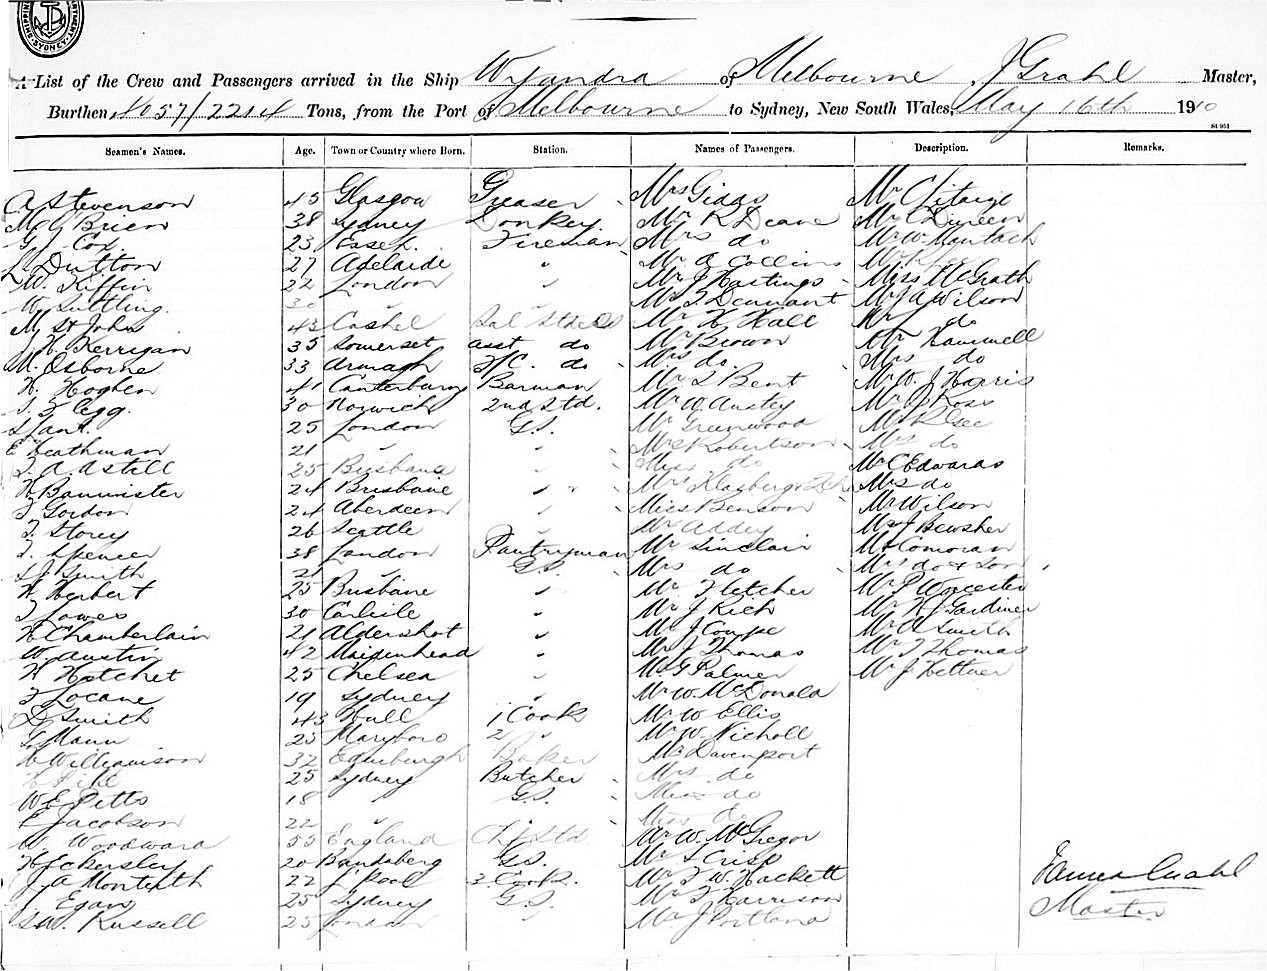 SYDNEY
A List of the Crew and Passengers arrived in the Ship Wyandra of Melbourne, J Grahl Master,
Burthen, 4057/2214 Tons, from the Port of Melbourne to Sydney, New South Wales, May 16th 1910
Seamen's Names. Age. Town or Country where Born. Station. Names of Passengers. Description. Remarks.
A Stevenson 45 Glasgow Greaser Mrs Gidds Mr C
M O'Brien 38 Sydney Donkey Mr R Deane Mr C
G Cox 23 Essex. Fireman Mrs do Mr W
L Dutton 27 Adelaide " Mr A Collins Mr
W. Kiffin 22 London " Mr J Hastings Miss McGrath
W Suttling. 30 " Mr T Dennant Mr J A Wilson
M St John 43 Cashel Sal Mr H Hall Mr J do
J H. Kerrigan 35 Somerset asst do Mr Brown Mr
M. Osborne 33 Armagh F/C. do Mrs do Mrs do
H. Hogben 41 Canterbury Barman Mr L Bent Mr W. J Harris
Clegg. 30 Norwich 2nd Std. Mr W Anstey Mr J Ross
25 London G.S. Mr Greenwood Mr R
E Leathman 21 " " Mr Robertson Mrs do
A. Astill 25 Brisbane " Miss do Mr C Edwards
H Bannister 24 Brisbane " Mrs do
Gordon 24 Aberdeen " Miss Benson Mr Wilson
T. Storey 26 Seattle " Mr Addey Mr J Bewsher
Spencer 38 London Pantryman Mr Sinclair Mr
Smith 21 " G.S. Mrs do Mrs do & Son
H Herbert 25 Brisbane " Mr Fletcher Mr P Worcester
Lowes 30 Carlisle " Mr J Rich Mr H Gardiner
H Chamberlain 21 Aldershot " Mr J Coupe Mr A Smith
W Austin 42 Maidenhead " Mr J Thomas Mr T Thomas
H Hatchet 25 Chelsea " Mr G Palmer Mr J Hettner
Locane 19 Sydney " Mr W McDonald
D Smith 43 Hull 1 Cook Mr W Ellis
G Mann 25 Maryboro 2 " Mr W. Nicholl
H Williamson 32 Edinburgh Baker Mr Davenport
H Pike 25 Sydney Butcher Mrs do
W E Pitts 18 " G.S. Miss do
E Jacobson 22 " Miss do
W. Woodward 55 England Mr W. McGregor
H Eckersley 20 Bundaberg G.S. Mr L Crisp
J A Monteith 22 L'pool 3. Cook. Mr T. W. Hackett
J Egan 25 Sydney G.S. Mr T Harrison
W. Russell 25 London " Mr J Portland
James Grahl
Master